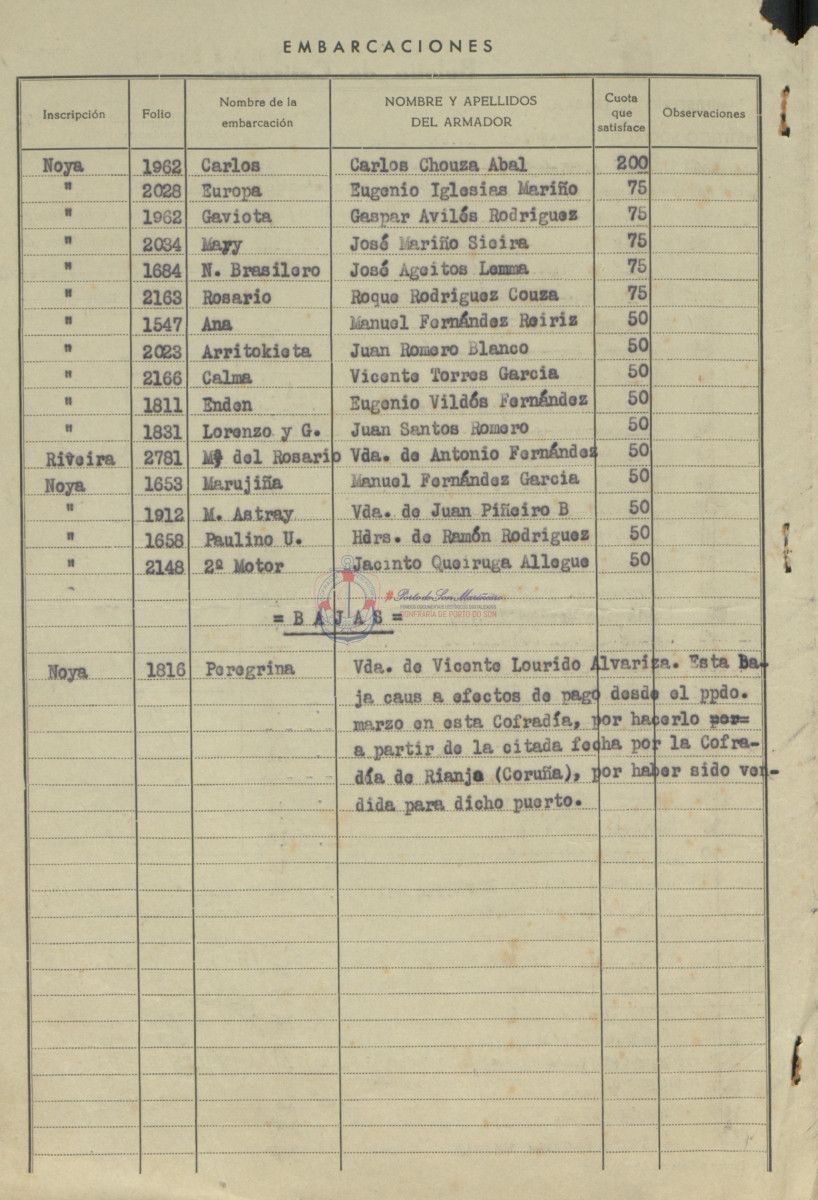 EMBARCACIONES
Inscripción Folio Nombre de la embarcación NOMBRE Y APELLIDOS DEL ARMADOR Cuota que satisface Observaciones
Noya 1962 Carlos Carlos Chouza Abal 200
" 2028 Europa Eugenio Iglesias Mariño 75
" 1962 Gaviota Gaspar Avilés Rodriguez 75
" 2034 Mayy José Mariño Sieira 75
" 1684 N. Brasilero José Ageitos Lemma 75
" 2163 Rosario Roque Rodriguez Couza 75
" 1547 Ana Manuel Fernández Reiriz 50
" 2023 Arritokieta Juan Romero Blanco 50
" 2166 Calma Vicente Torres Garcia 50
" 1811 Enden Eugenio Vildés Fernández 50
" 1831 Lorenzo y G. Juan Santos Romero 50
Riveira 2781 Mª del Rosario Vda. de Antonio Fernández 50
Noya 1653 Marujiña Manuel Fernández Garcia 50
" 1912 M. Astray Vda. de Juan Piñeiro B 50
" 1658 Paulino U. Hdrs. de Ramón Rodriguez 50
" 2148 2º Motor Jacinto Queiruga Allegue 50
Porto do Son Mariñeiro
FONDOS DOCUMENTAIS HISTÓRICOS DIXITALIZADOS
CONFRARÍA DE PORTO DO SON
= B A J A S =
Noya 1816 Peregrina Vda. de Vicente Lourido Alvariza. Esta Ba-
ja caus a efectos de pago desde el ppdo.
marzo en esta Cofradía, por hacerlo por=
a partir de la citada fecha por la Cofra-
día de Rianjo (Coruña), por haber sido ven-
dida para dicho puerto.